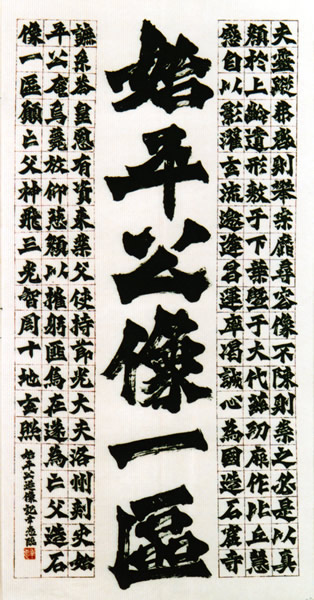 夫靈蹤弗啓則攀宗靡尋容像不陳則崇之必是以真
顏於上齡遺形敷于下葉暨于大代茲功厥作比丘慧
成自以影濯玄流邀逢昌運率渴誠心為國造石窟寺
始平公像一區
系荅皇恩有資來業父使持節光大夫洛州刺史始
平公奄焉薨放仰慈顏以摧躬匪烏在遂為亡父造石
像一區願亡父神飛三光智周十地玄照
始平公造像記